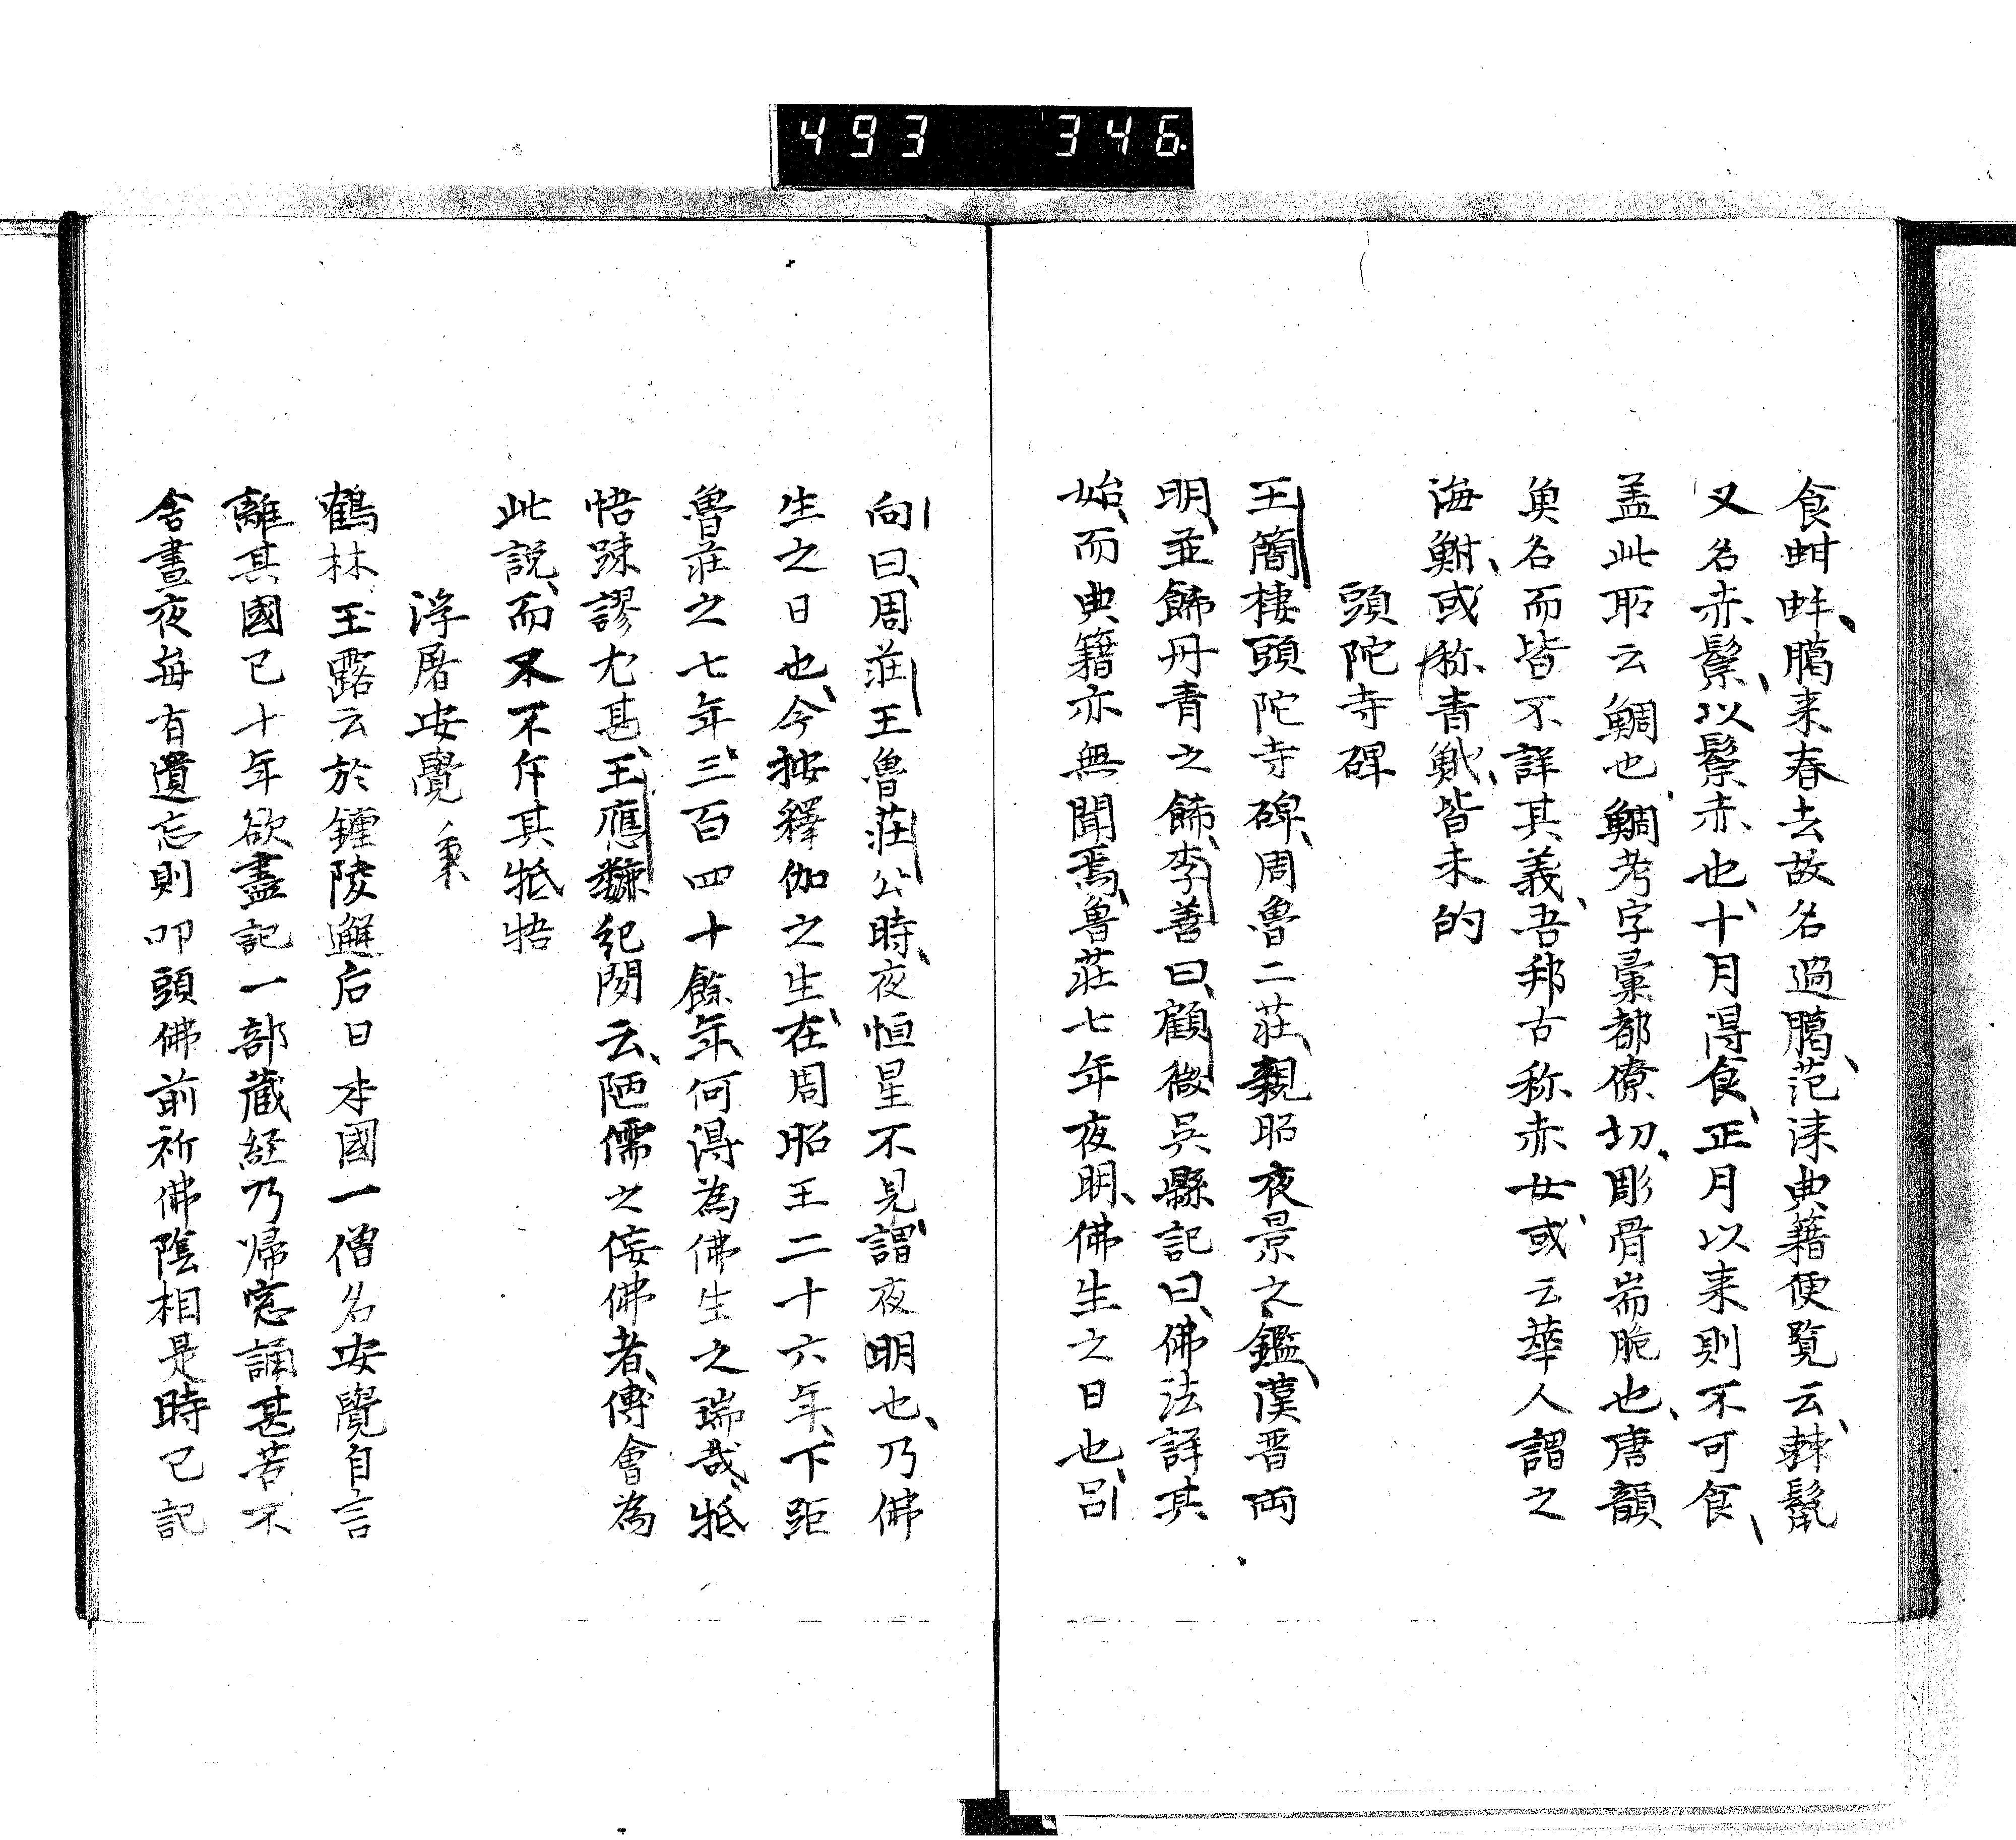 493 346
食蚶蚌、臈来春去故名過臈、范淶典籍便覧云、棘鬣
又名赤鬃、以鬃赤也、十月得食、正月以来則不可食、
盖此耶云鯛也、鯛考字彙都僚切、彫骨耑脆也、唐韻
魚名而皆不詳其義、吾邦古称赤女、或云華人謂之
海鮒、或称青鱿、皆未的
頭陀寺碑
王簡棲頭陀寺碑、周魯二莊、親昭夜景之鑑、漢晋両
明、並餙丹青之餙、李善曰、顧微呉縣記曰、佛法詳其
始、而典籍亦無聞焉、魯莊七年夜明、佛生之日也、呂
向曰、周莊王魯莊公時、夜恒星不見、謂夜明也、乃佛
生之日也、今按釋伽之生、在周昭王二十六年、下距
魯莊之七年、三百四十餘年、何得為佛生之瑞哉、牴
悟踈謬尤甚、王應麟紀聞云、陋儒之佞佛者、傅會為
此説、而又不斥其牴牾
浮屠安覺
鶴林玉露云於鍾陵邂后日本國一僧名安覺自言
離其國已十年欲盡記一部蔵経乃帰窓誦甚苦不
舎晝夜毎有遺忘則叩頭佛前祈佛陰相是時已記